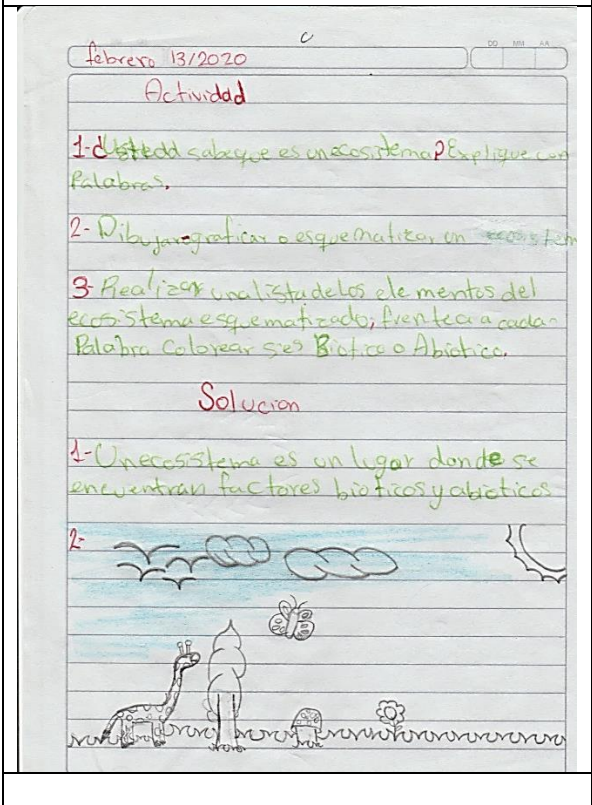 C
DD MM AA
febrero 13/2020
Actividad
1-¿Ustedd sabeque es unecosistema? Explique con
Palabras.
2- Dibujar-graficar o esquematizar un ecosistem
3- Realizar unalistadelos elementos del
ecosistema esquematizado, frentea a cada-
Palabra Colorear sies Biotico o Abiotico.
Solucion
1-Unecosistema es un lugar donde se
encuentran factores bioticos y abioticos
2-